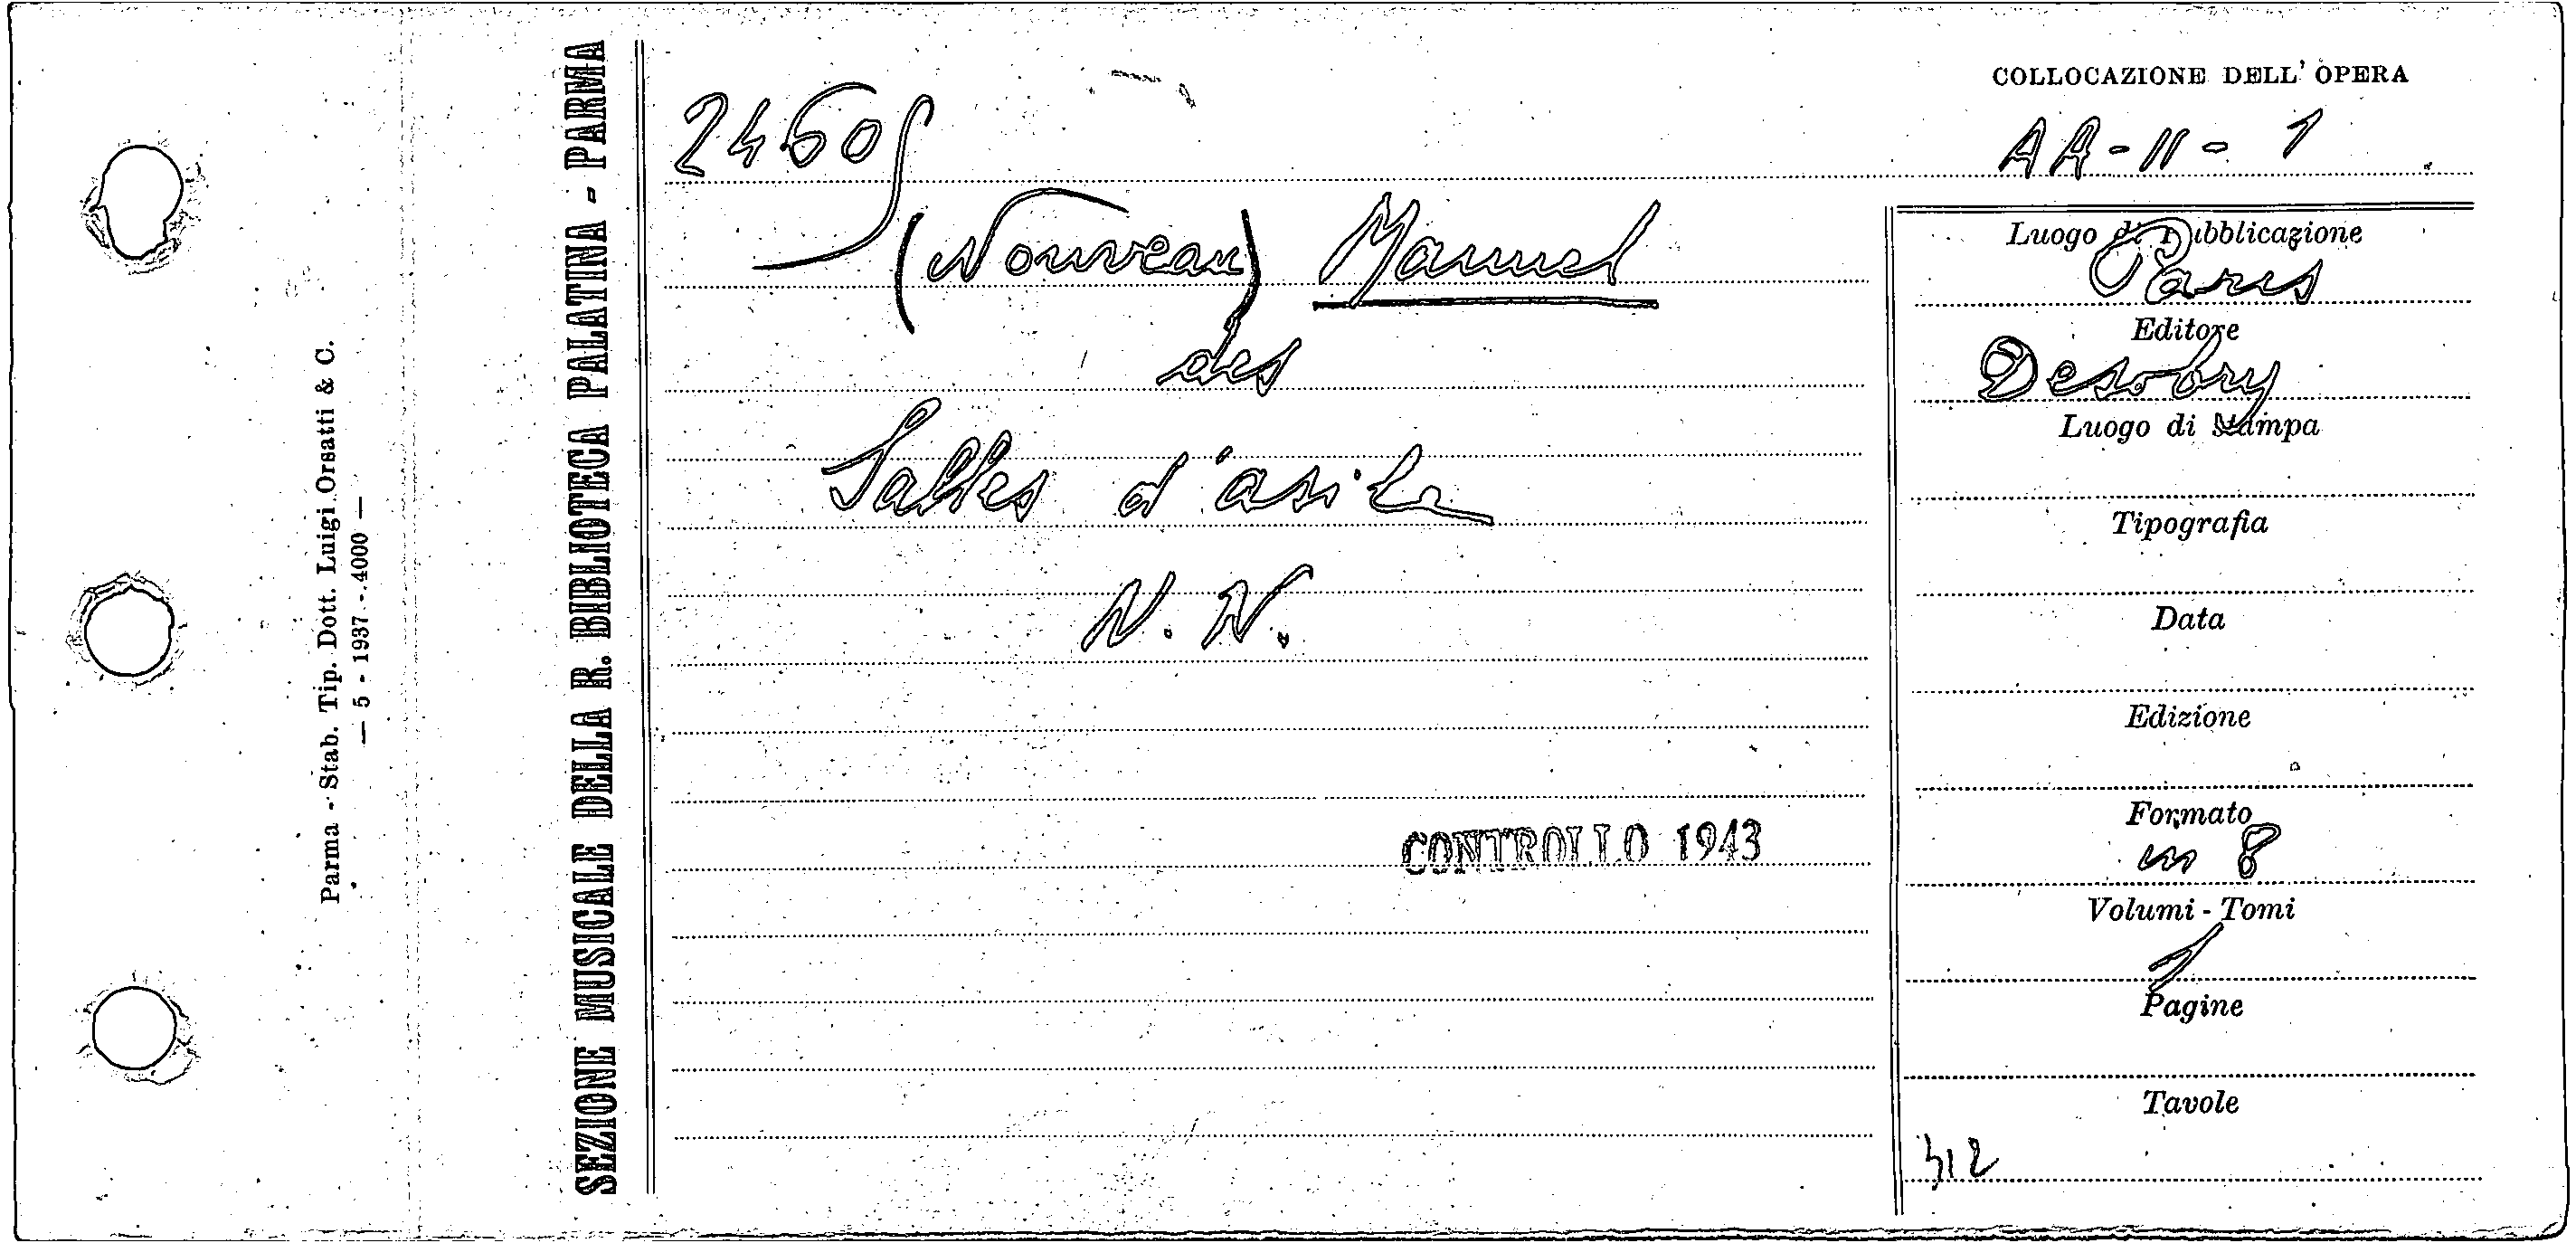 Parma - Stab. Tip. Dott. Luigi Orsatti & C.
— 5 - 1937 - 4000 —
SEZIONE MUSICALE DELLA R. BIBLIOTECA PALATINA - PARMA
2460
(Nouveau) Manuel
des
Salles d'asile
N. N.
CONTROLLO 1943
COLLOCAZIONE DELL' OPERA
AA - II - 1
Luogo di Pubblicazione
Paris
Editore
Desobry
Luogo di Stampa
Tipografia
Data
Edizione
Formato
in 8
Volumi - Tomi
1
Pagine
Tavole
312